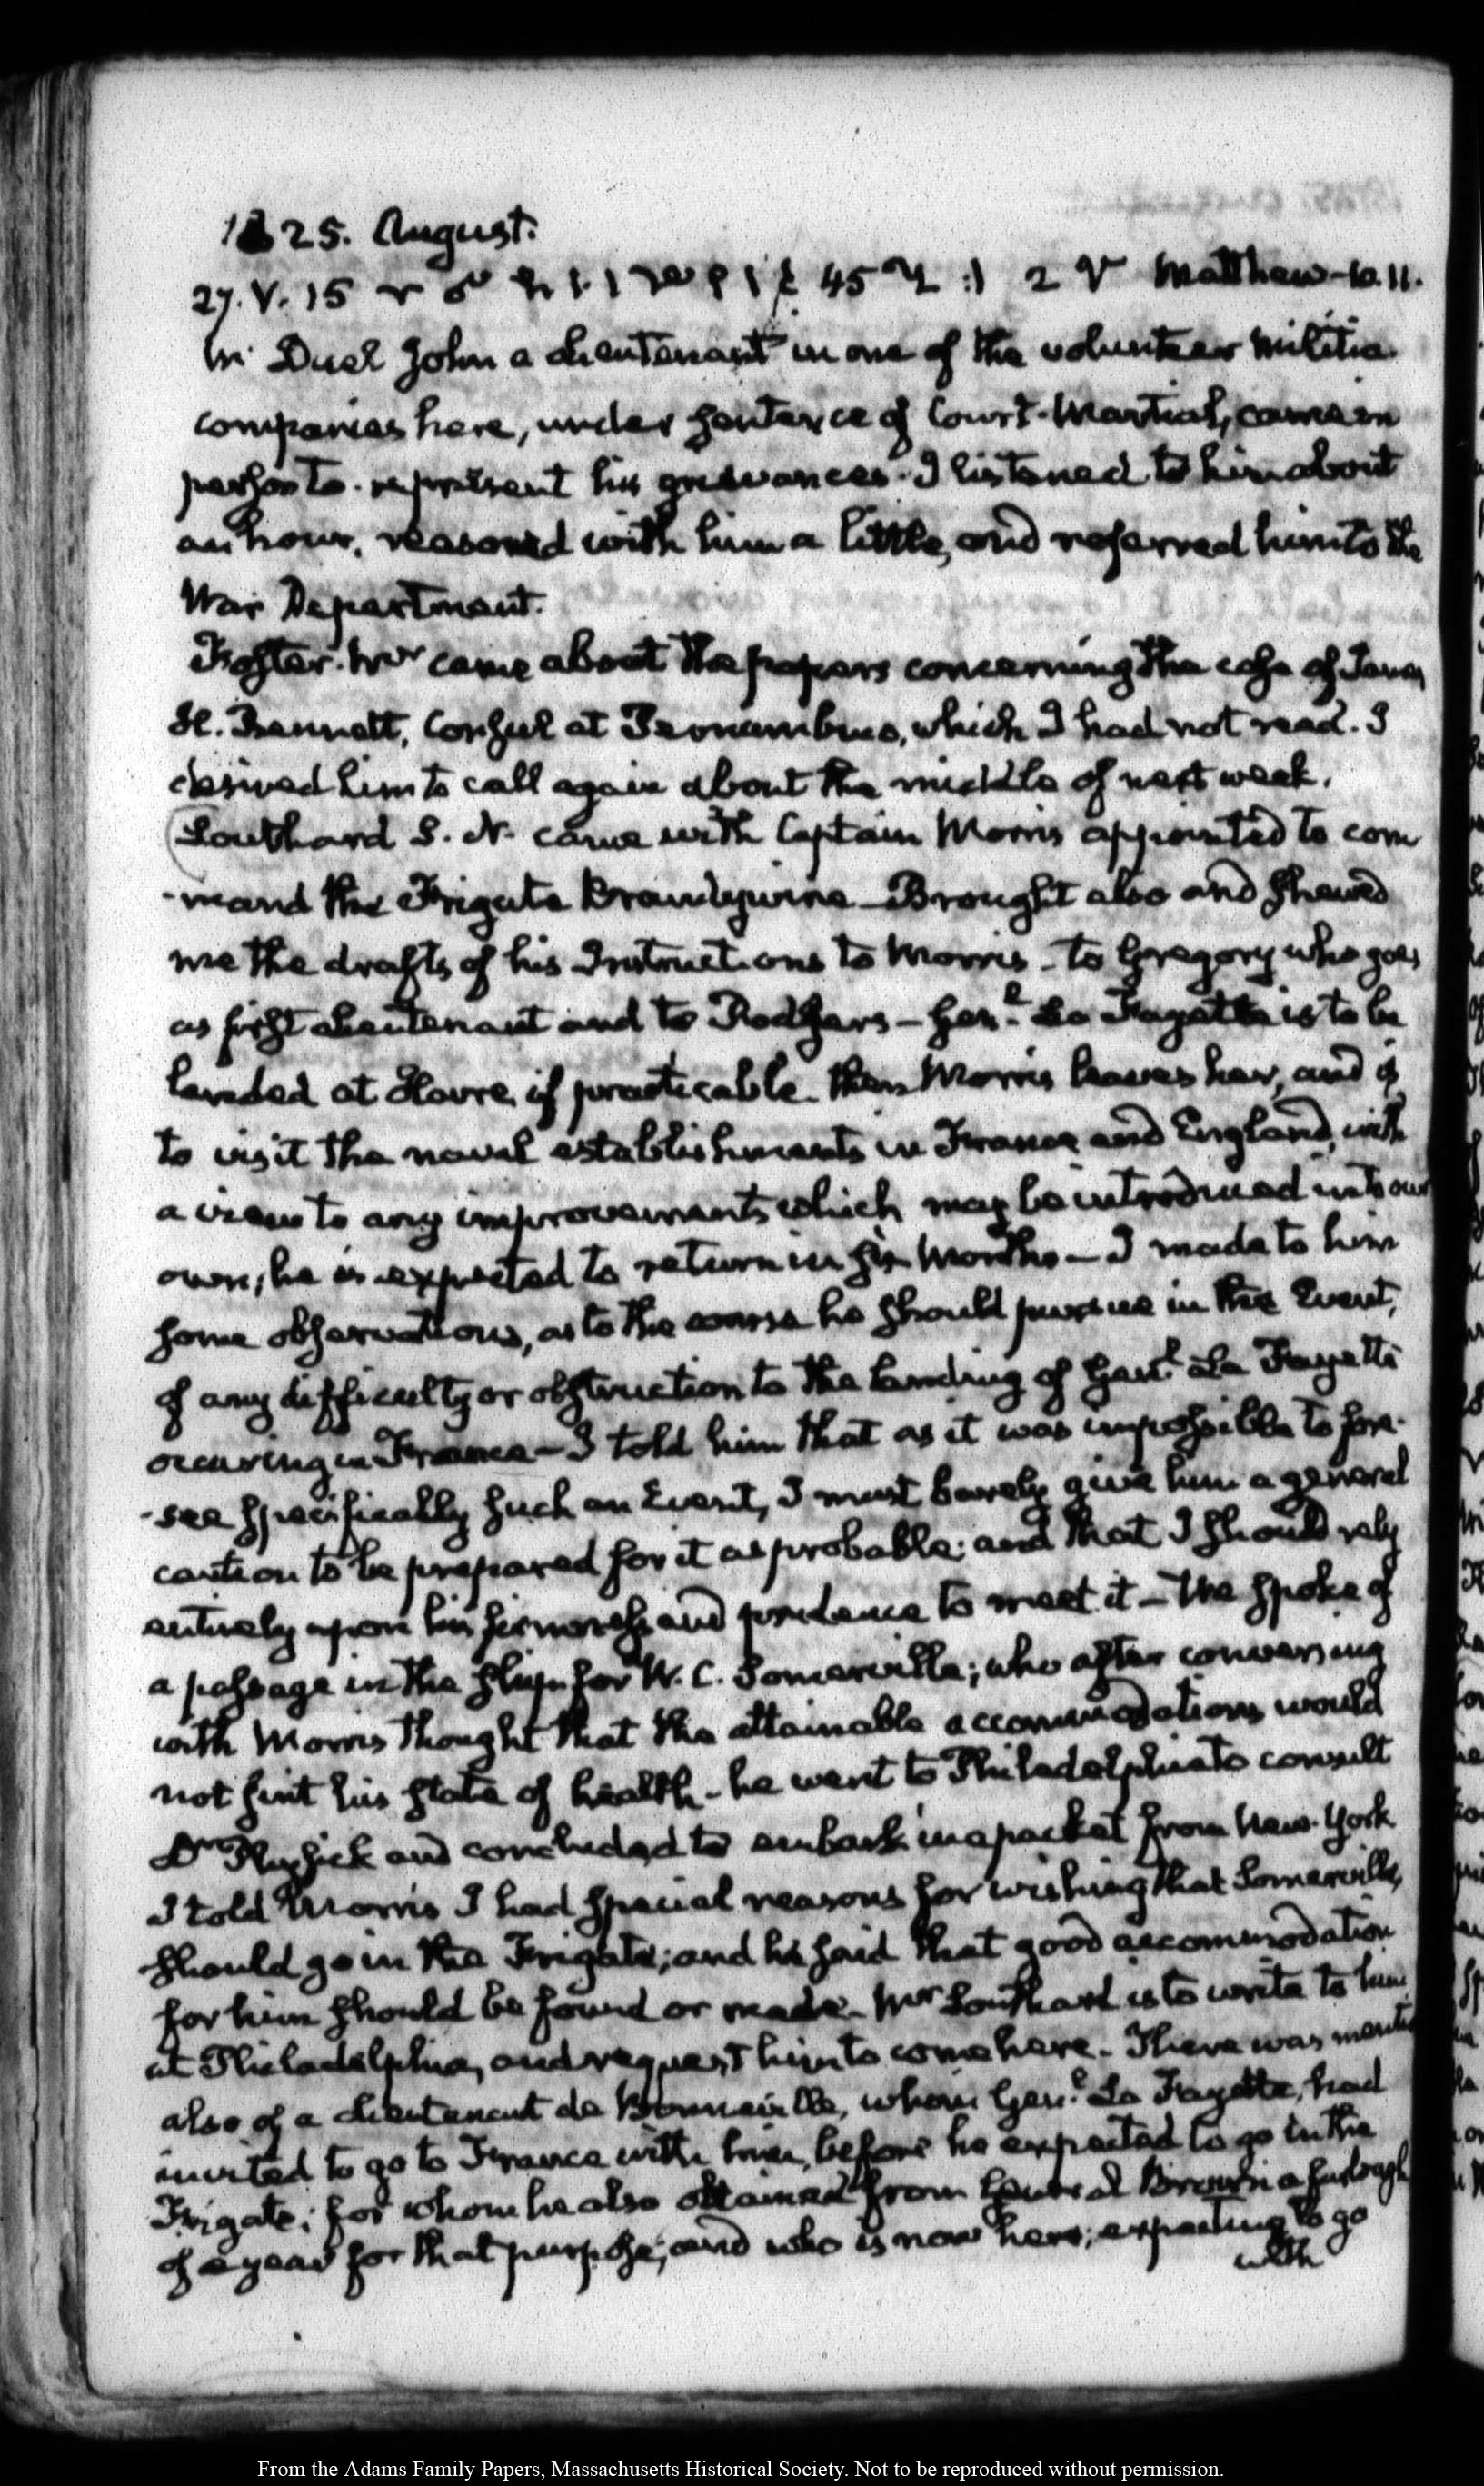 1825. August.
27. V. 15 45 2 Matthew-10.11.
Mc Duel John a Lieutenant in one of the volunteer militia
companies here, under sentence of Court-Martial, came in
person to represent his grievances. I listened to him about
an hour, reasoned with him a little, and referred him to the
War Department.
Foster. Mr came about the papers concerning the case of James
H. Bennett, Consul at Pernambuco, which I had not read. I
desired him to call again about the middle of next week.
Southard S. N. came with Captain Morris appointed to com
-mand the Frigate Brandywine—Brought also and shewed
me the drafts of his Instructions to Morris—to Gregory who goes
as first Lieutenant and to Rodgers—Genl. La Fayette is to be
landed at Havre, if practicable. Then Morris leaves her, and is
to visit the naval establishments in France and England, with
a view to any improvements which may be introduced into our
own; he is expected to return in six Months—I made to him
some observations, as to the course he should pursue in the Event,
of any difficulty or obstruction to the landing of Genl. La Fayette
occurring in France—I told him that as it was impossible to fore-
-see specifically such an Event, I must barely give him a general
caution to be prepared for it as probable; and that I should rely
entirely upon his firmness and prudence to meet it—He spoke of
a passage in the ship for W. C. Somerville; who after conversing
with Morris thought that the attainable accommodations would
not suit his state of health—he went to Philadelphia to consult
Dr Physick and concluded to embark in a packet from New-York
I told Morris I had special reasons for wishing that Somerville,
should go in the Frigate; and he said that good accommodation
for him should be found or made. Mr Southard is to write to him
at Philadelphia, and request him to come here. There was menti
also of a Lieutenant de Bonneville, whom Genl. La Fayette, had
invited to go to France with him, before he expected to go in the
Frigate; for whom he also obtained from General Brown a furlough
of a year for that purpose; and who is now here; expecting to go
with
From the Adams Family Papers, Massachusetts Historical Society. Not to be reproduced without permission.